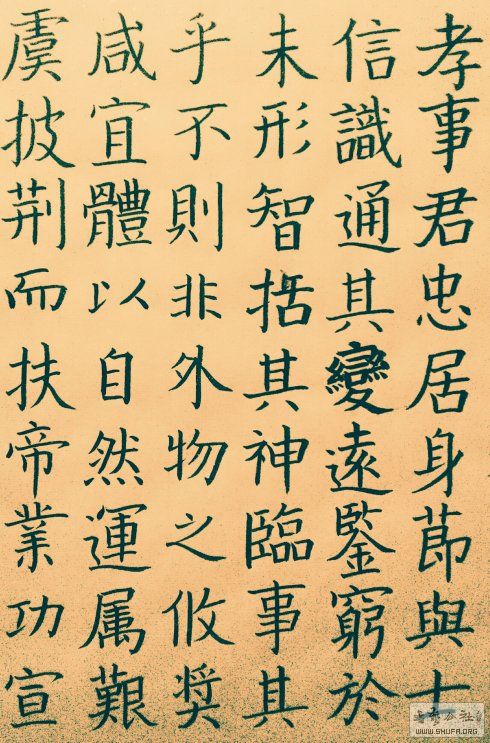 孝事君忠居身莭與士
信識通其變遠鑒窮於
未形智括其神臨事其
乎不則非外物之攸奬
咸宜體以自然運属艱
虞披荆而扶帝業功宣
WWW.SHUFA.ORG